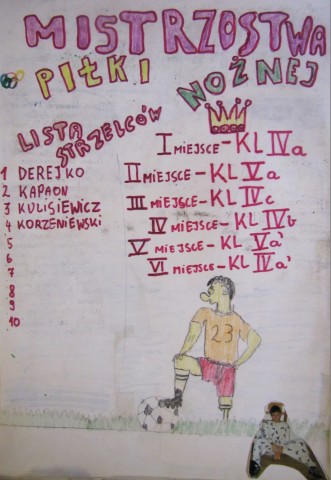 MISTRZOSTWA
PIŁKI NOŻNEJ
LISTA STRZELCÓW
1 DEREJKO
2 KAPAON
3 KULISIEWICZ
4 KORZENIEWSKI
5
6
7
8
9
10
I MIEJSCE - KL IVa
II MIEJSCE - KL Va
III MIEJSCE - KL IVc
IV MIEJSCE - KL IVb
V MIEJSCE - KL Va'
VI MIEJSCE - KL IVa'
23